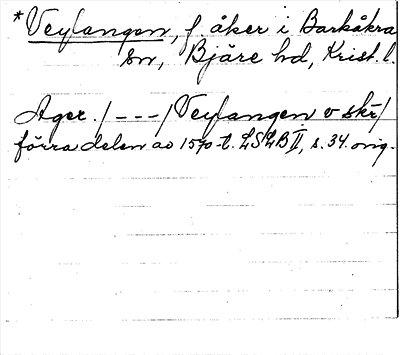 *Veylangen, f. åker i Barkåkra
sn, Bjäre hd, Krist. l.
Ager. / - - - / Veylangen v skr /
förra delen av 1570-t. LSLB II, s. 34. orig.